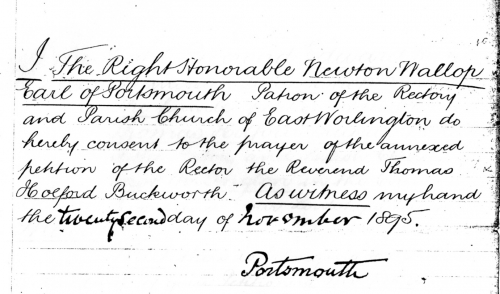 I The Right Honorable Newton Wallop
Earl of Portsmouth Patron of the Rectory
and Parish Church of East Worlington do
hereby consent to the prayer of the annexed
petition of the Rector the Reverend Thomas
Holford Buckworth. As witness my hand
the twenty second day of november 1895.
Portsmouth